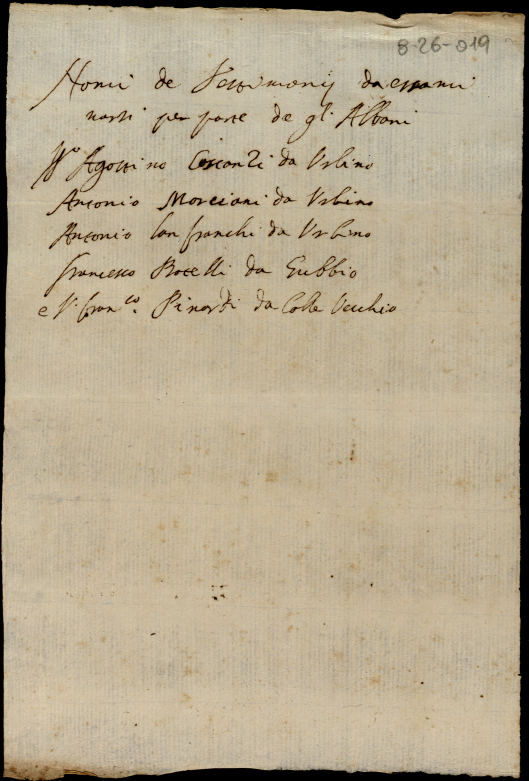 8-26-019
Nomi de Testimonij da essami
narsi per parte de gl' Albani
Agostino da Urbino
Antonio Morciani da Urbino
Antonio Lanfranchi da Urbino
Francesco Botelli da Gubbio
e S.r Fran.co Pinardi da Colle Vecchio